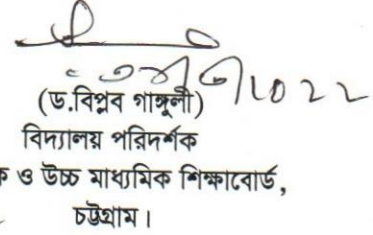 (ড.বিপ্লব গাঙ্গুলী)
বিদ্যালয় পরিদর্শক
ক ও উচ্চ মাধ্যমিক শিক্ষাবোর্ড,
চট্টগ্রাম।